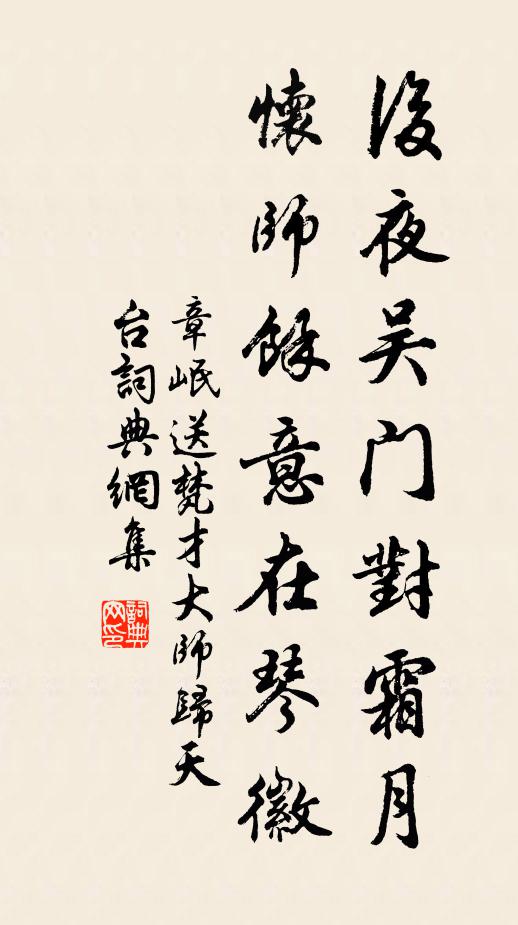 後夜吴門對霜月
懷師餘意在琴徽
章岷送梵才大師歸天
台詞典網集
詞典
网印